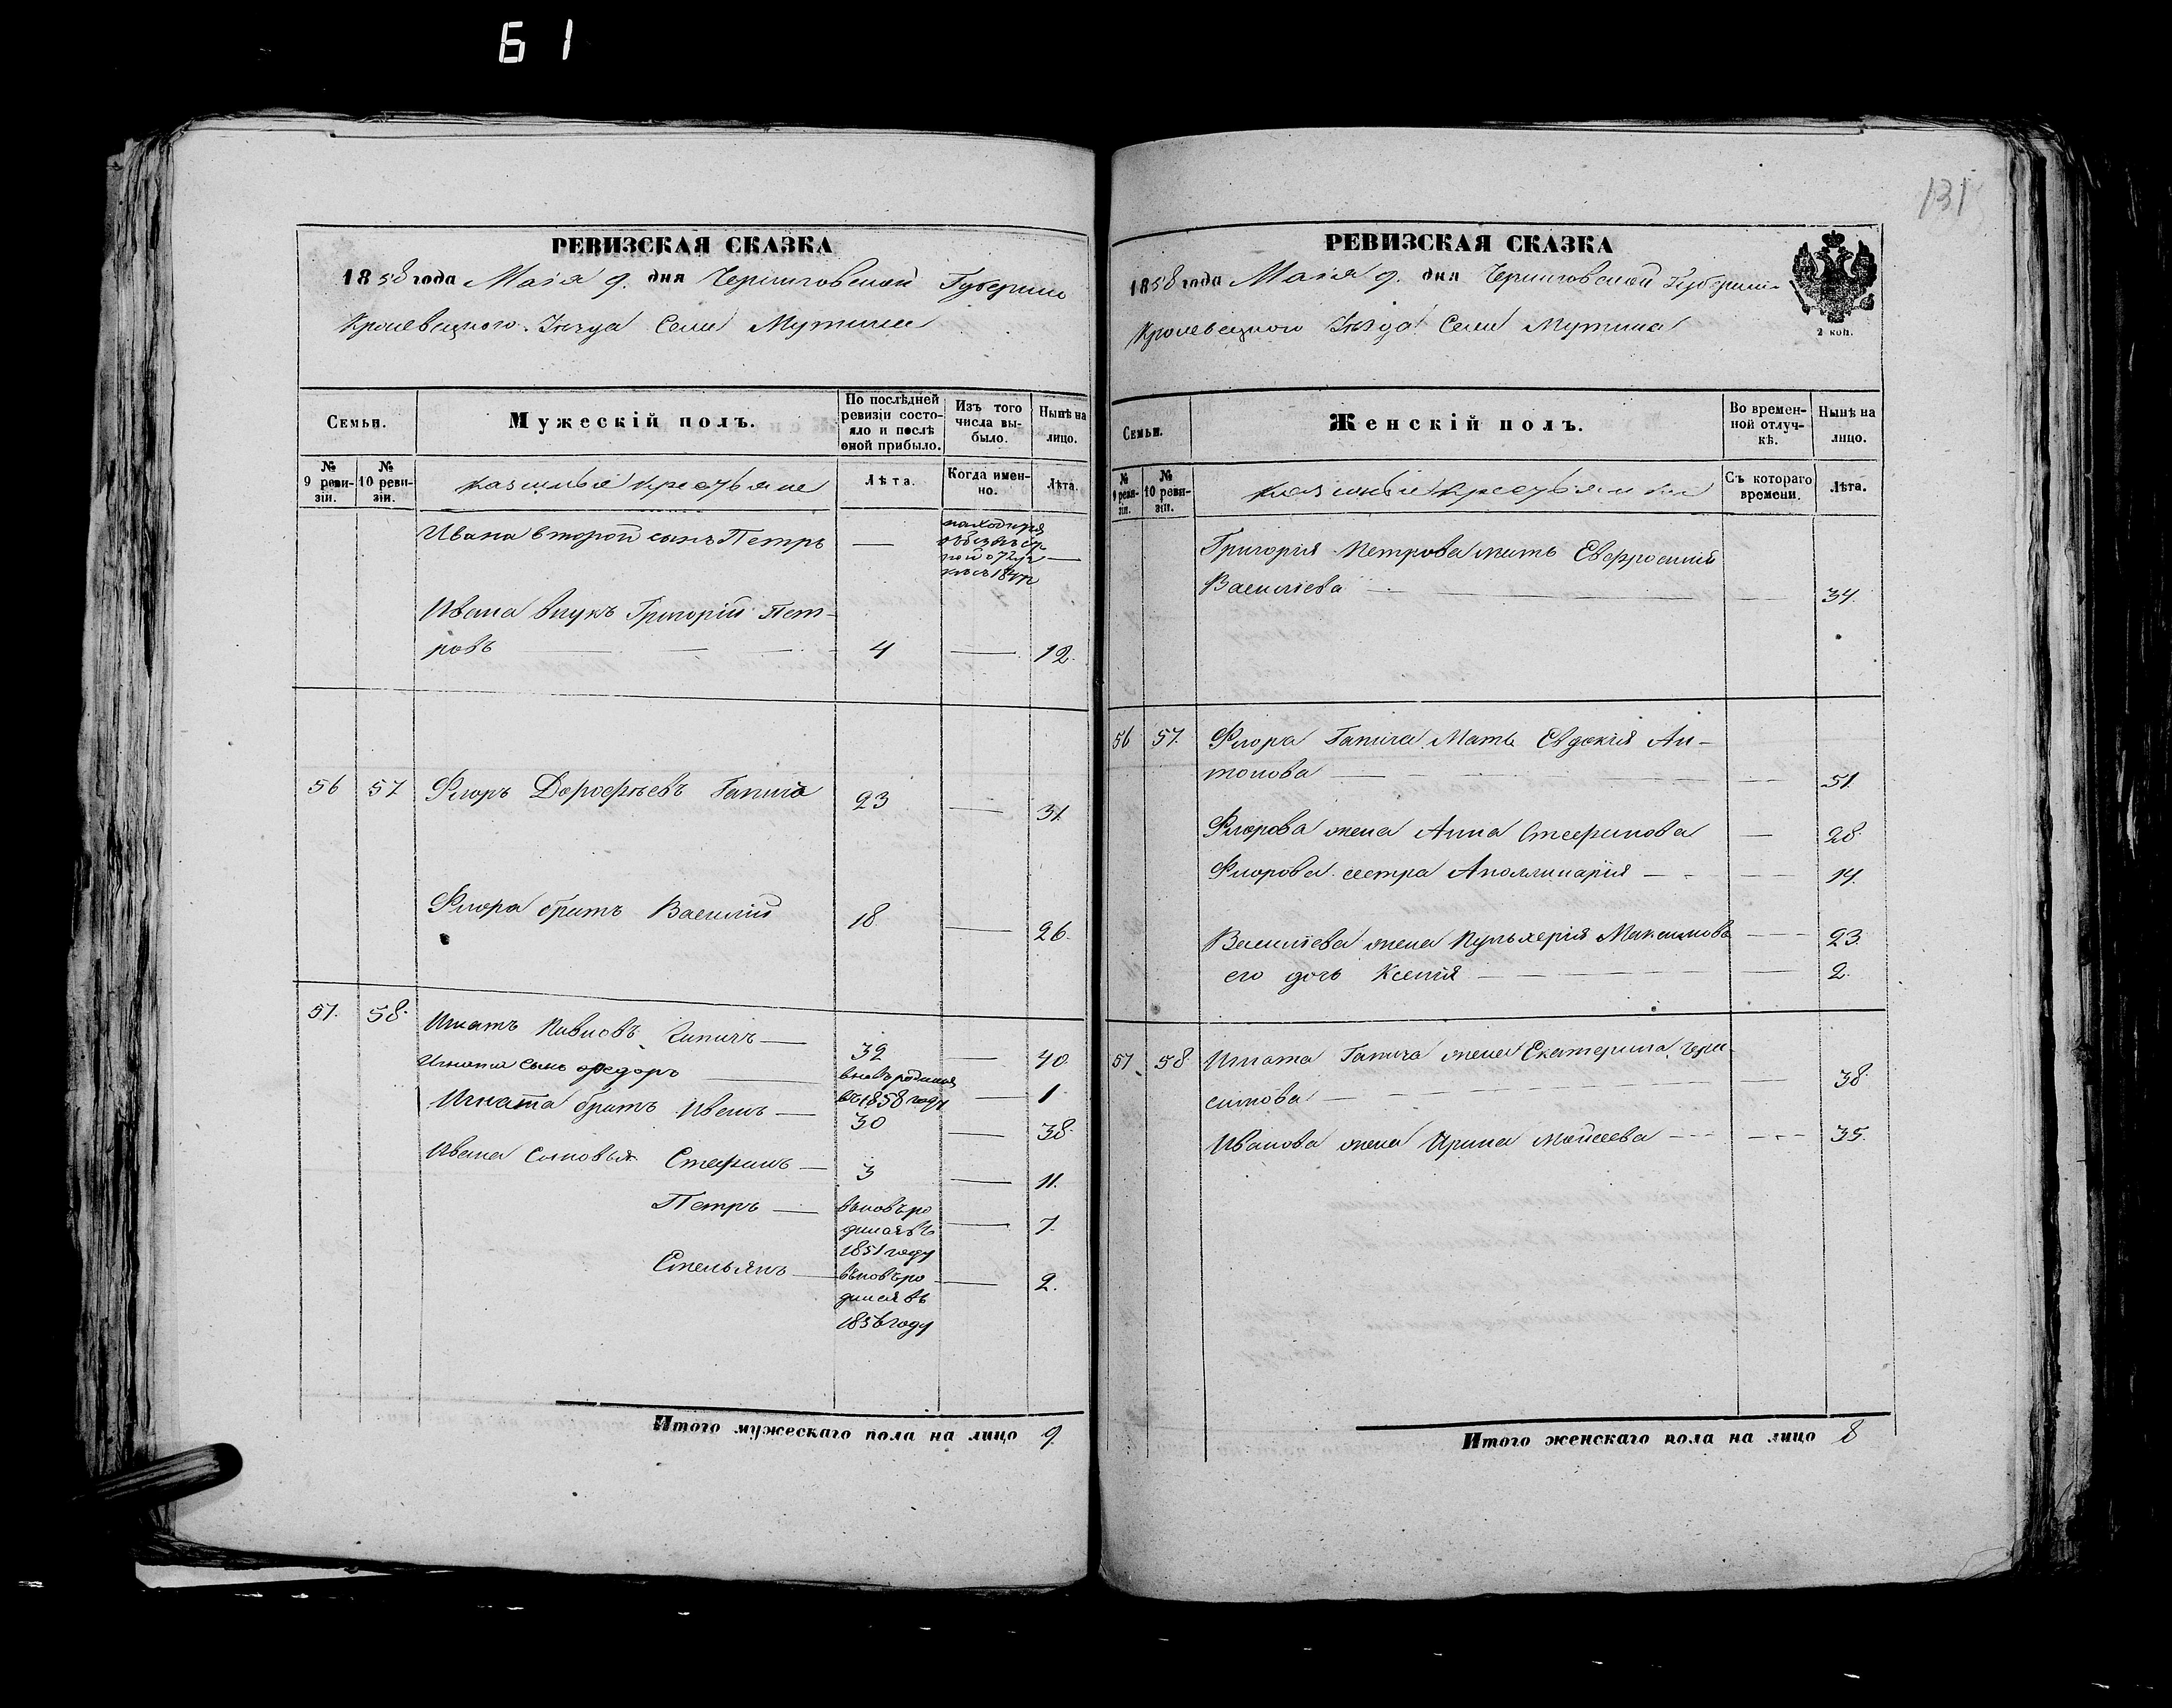 61
РЕВИЗСКАЯ СКАЗКА
1858 года Маія 9. дня Черниговской Губерніи
Кролевецкого Уѣзда Села Мутина
Семьи.
Мужескій полъ.
По послѣдней ревизіи состояло и послѣ оной прибыло.
Изъ того числа выбыло.
Нынѣ на лицо.
№ 9 ревизіи.
№ 10 ревизіи.
казенные крестьяне
Лѣта.
Когда именно.
Лѣта.
Ивана второй сынъ Петръ —
находится
—
Ивана внукъ Григорій Пет-
ровъ — 4 — 12.
56 57 Флоръ Дорофѣевъ Гапичъ 23 — 31
Флора братъ Василій 18 — 26.
57. 58. Игнатъ Павловъ Гапичъ — 32 — 40.
Игната сынъ Федоръ — вновь родился
въ 1858 году — 1
Игната братъ Иванъ — 30 — 38.
Ивана сыновья Стефанъ — 3 — 11.
Петръ — вновь ро
дился въ — 7.
1851 году
Емельянъ — вновь ро — 2.
дился въ
1856 году
Итого мужескаго пола на лицо 9.
131
РЕВИЗСКАЯ СКАЗКА
1858 года Маія 9. дня Черниговской Губерніи
2 коп.
Кролевецкого Уѣзда Села Мутина
Семьи.
Женскій полъ.
Во временной отлучкѣ.
Нынѣ на лицо.
№ 9 ревизіи.
№ 10 ревизіи.
казенные крестьянки
Съ котораго времени.
Лѣта.
Григорія Петрова мать Евфросинія
Васильева — — 34.
56 57. Флора Гапича Мать Евдокія Ан-
тонова — — 51.
Флорова жена Анна Стефанова — 28.
Флорова сестра Аполлинарія — — 14.
Васильева жена Пульхерія Максимова — 23.
его дочь Ксенія — — 2.
57. 58 Игната Гапича жена Екатерина Гера-
симова — — 38.
Иванова жена Ирина Моисеева — — 35.
Итого женскаго пола на лицо 8